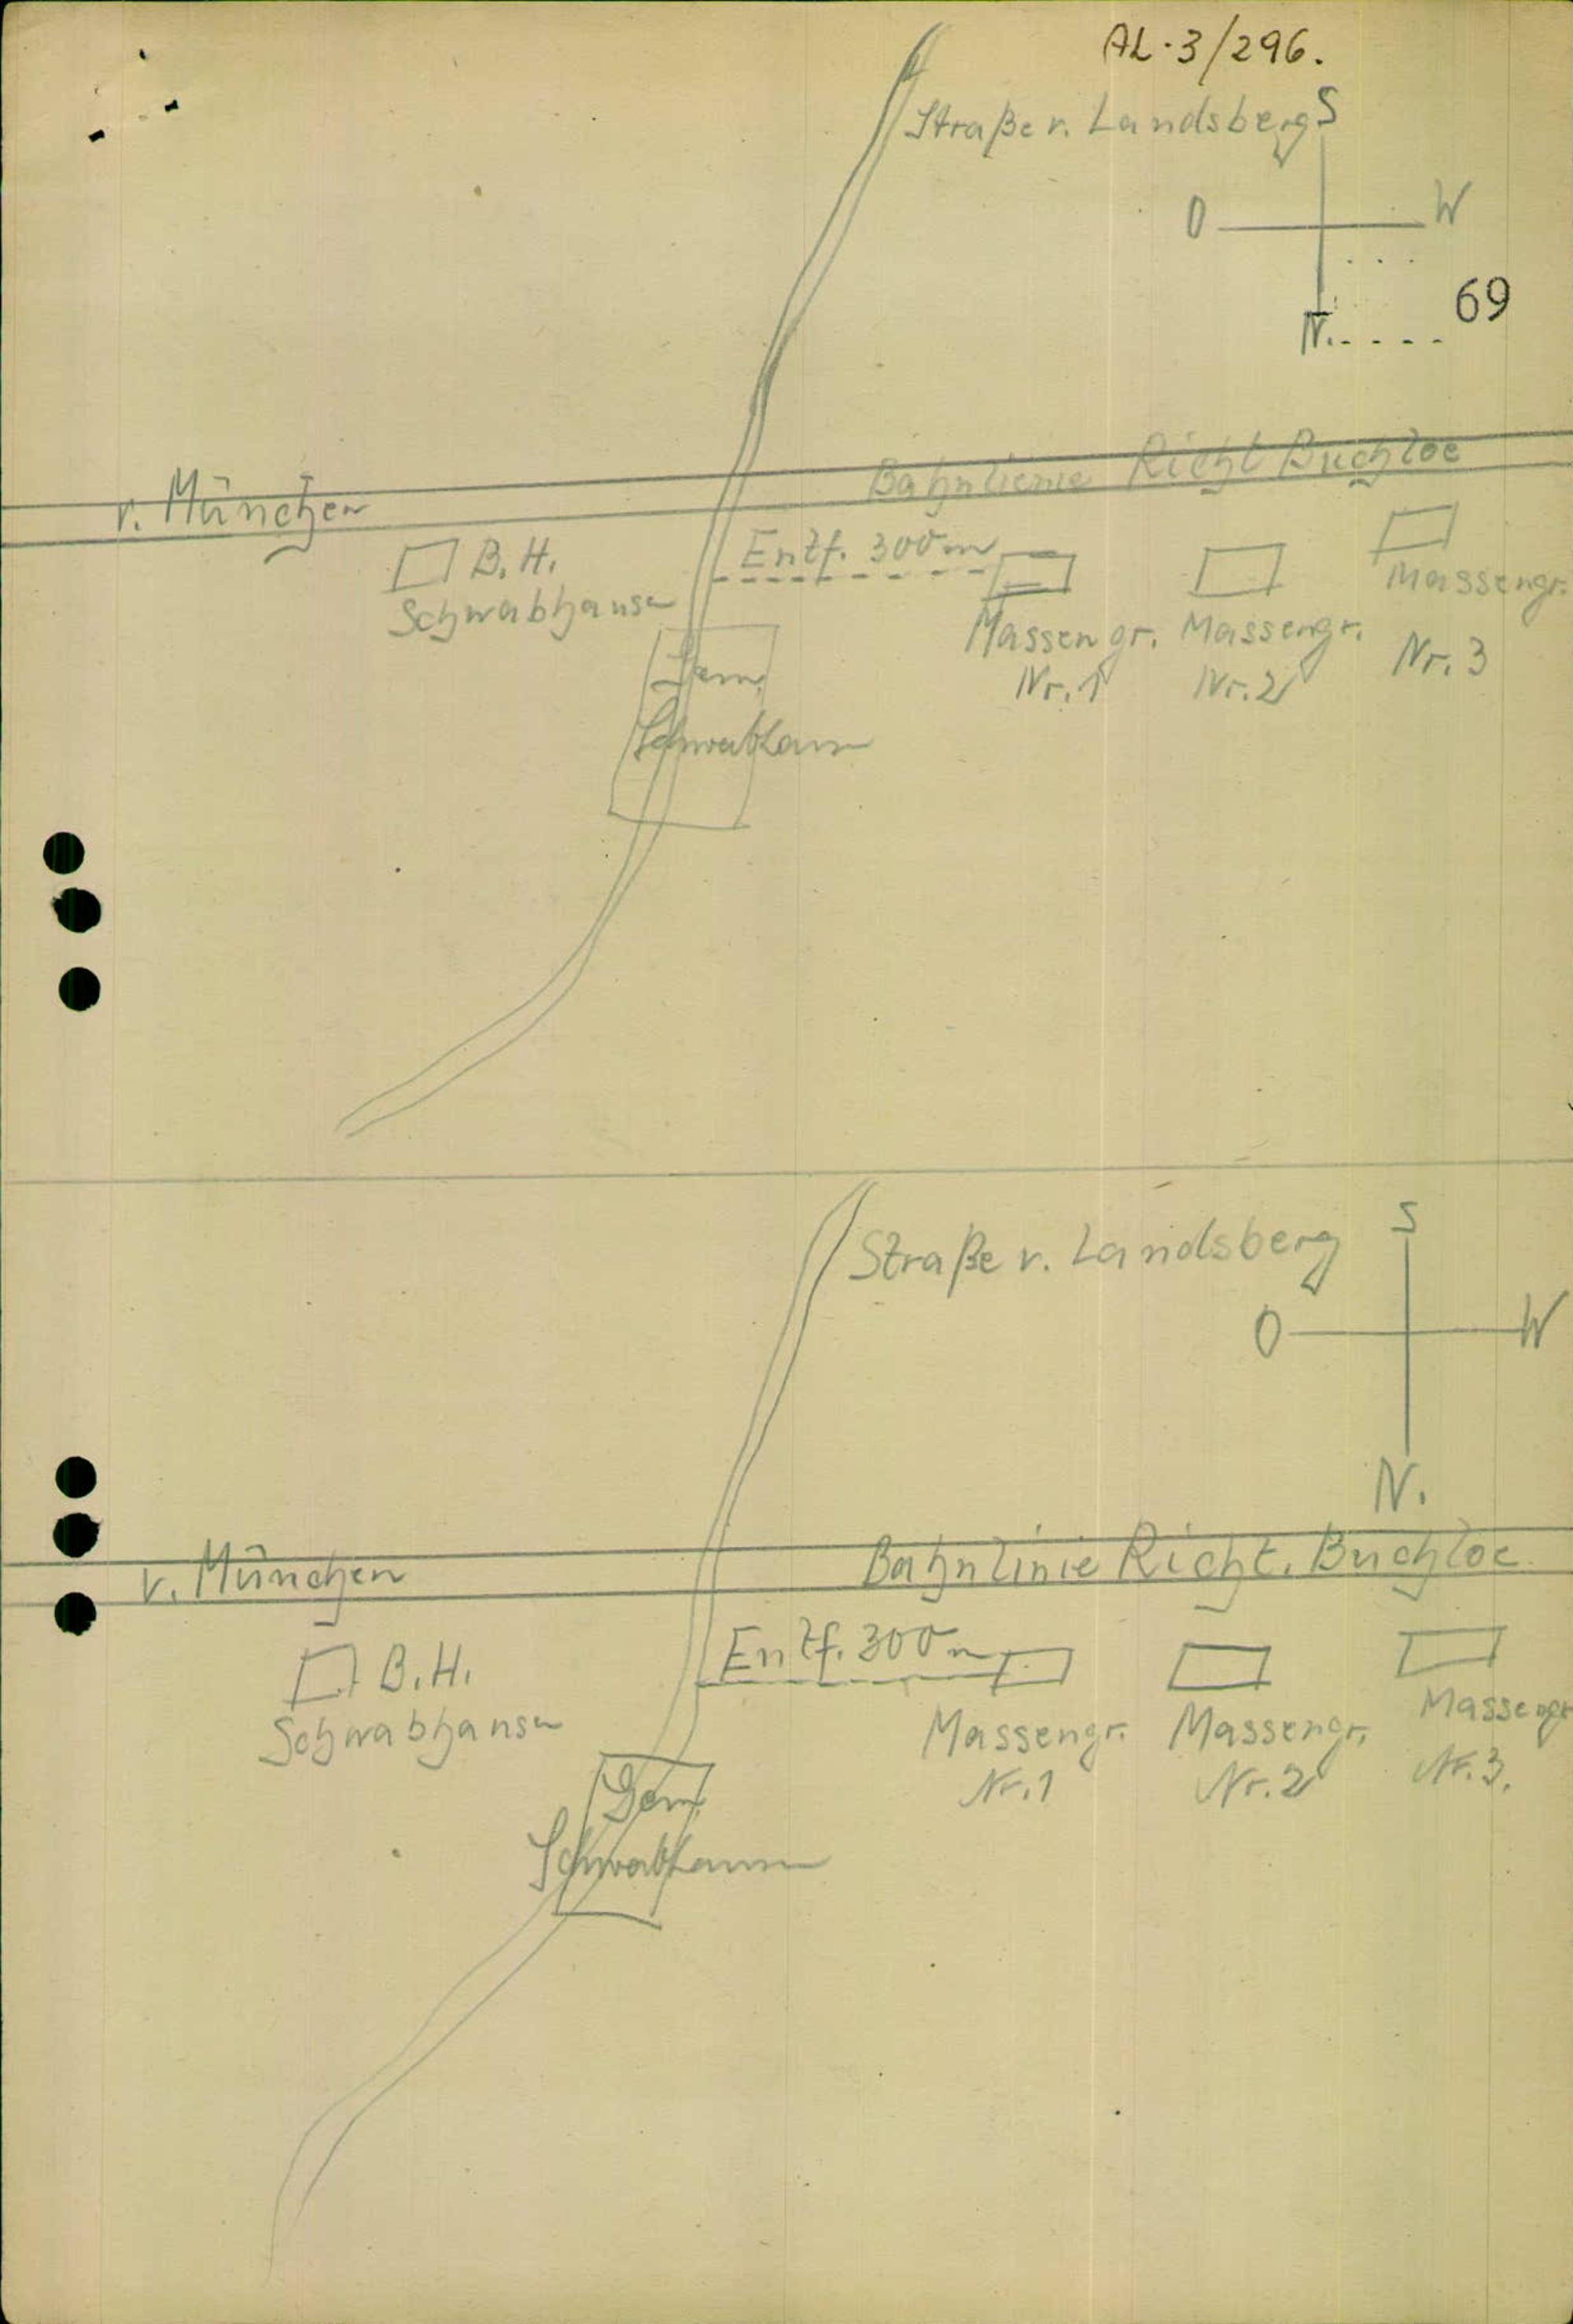 AL-3/296.
Straße v. Landsberg
S
O W
N.
69
Bahnlienie Richt Buchloe
v. München
Entf. 300 m
B. H.
Schwabhausen
Massengr.
Nr. 1
Massengr.
Nr. 2
Massengr.
Nr. 3
Gem.
Schwabhausen
Straße v. Landsberg
S
O W
N.
Bahnlinie Richt. Buchloe
v. München
Entf. 300 m
B. H.
Schwabhausen
Massengr.
Nr. 1
Massengr.
Nr. 2
Massengr
Nr. 3.
Gem.
Schwabhausen